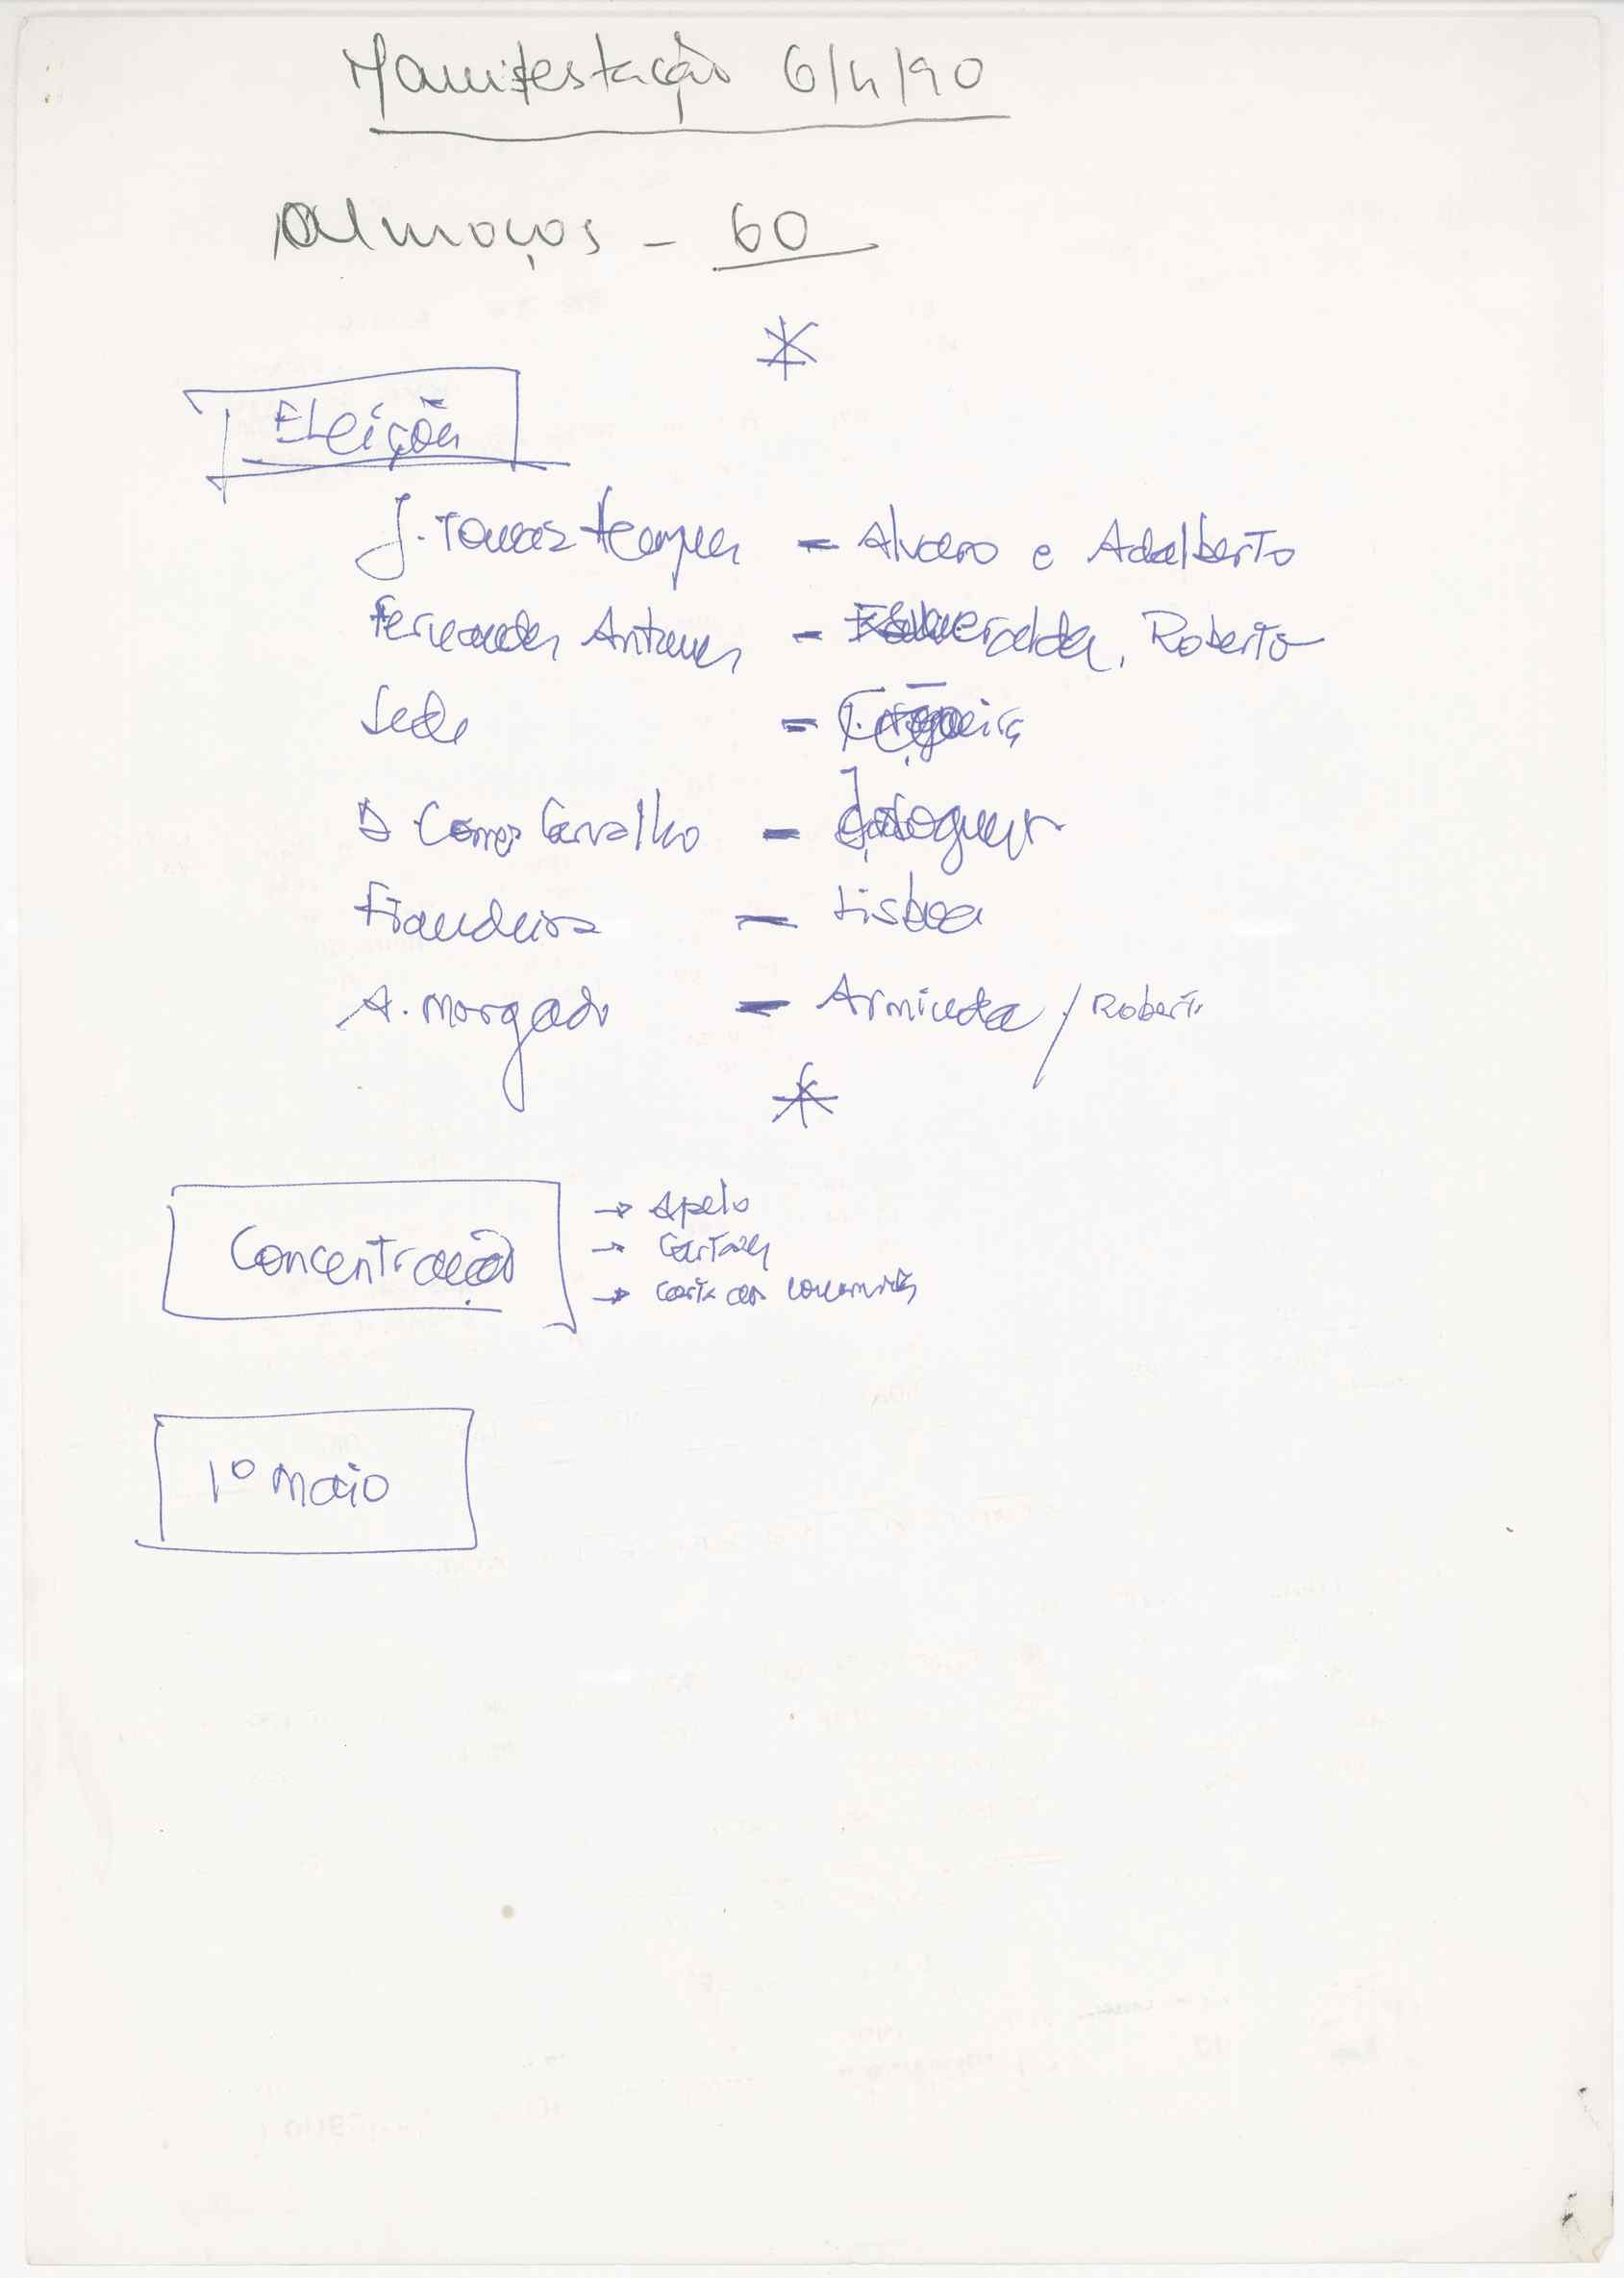 Manifestação 6/4/90
Almoços - 60
Eleição
J. Tomaz - Alvaro e Adalberto
Fernandes Antunes - Esmeralda, Roberto
Sede -
Gomes Carvalho -
Fiandeira - Lisboa
A. Morgado - Arminda / Roberto
Concentração
→ Apelo
→ Cartazes
→ carta aos
1º Maio